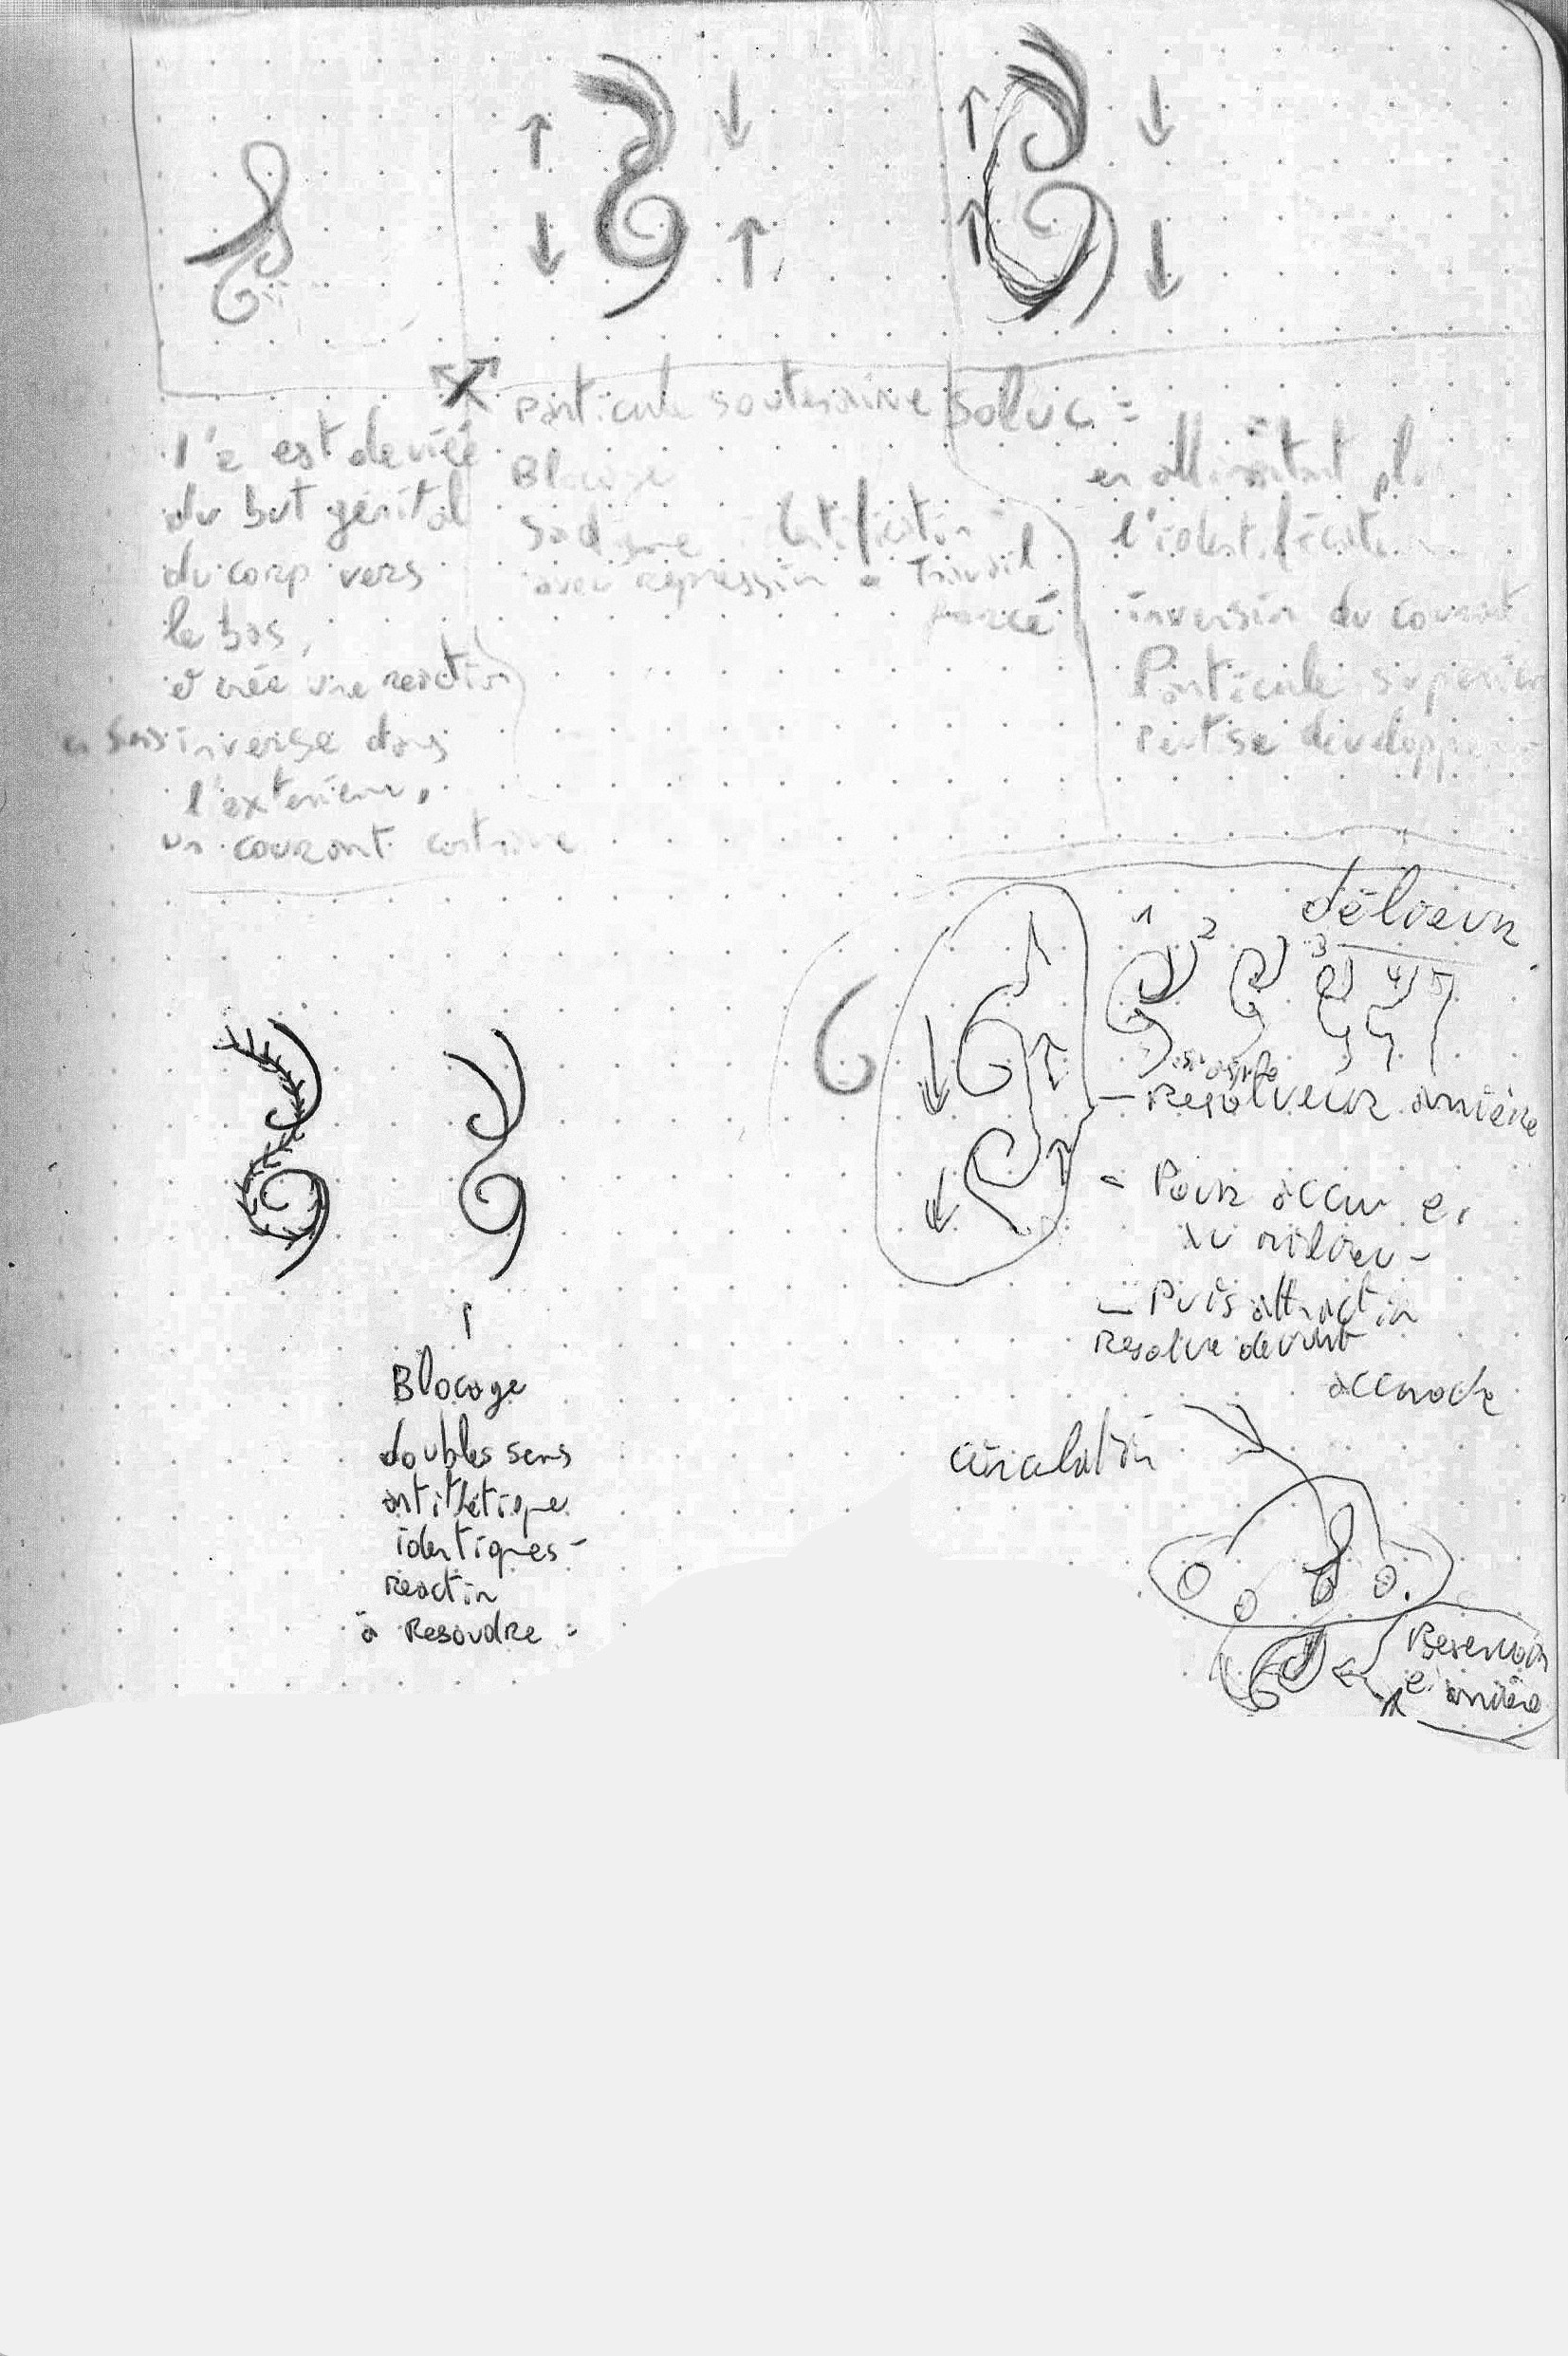 l'e est deviée
du but génital
du corp vers
le bas,
et crée une reaction
en sens inverse dans
l'exterieur,
un courant contraire
Particule souteraine
Blocage
Sadisme
avec repression = Travail
forcé
Soluc =
en alimentant plus
inversion du courant
Particule superieur
peut se développer
1 2 3 4 5
Resolveur arriere
- Pour accu e.
au milieu -
- Puis attraction
Resolve devant
accroche
circulation
Reservoir
e. arriere
Blocage
doubles sens
antithetique
identiques -
reaction
à Resoudre :